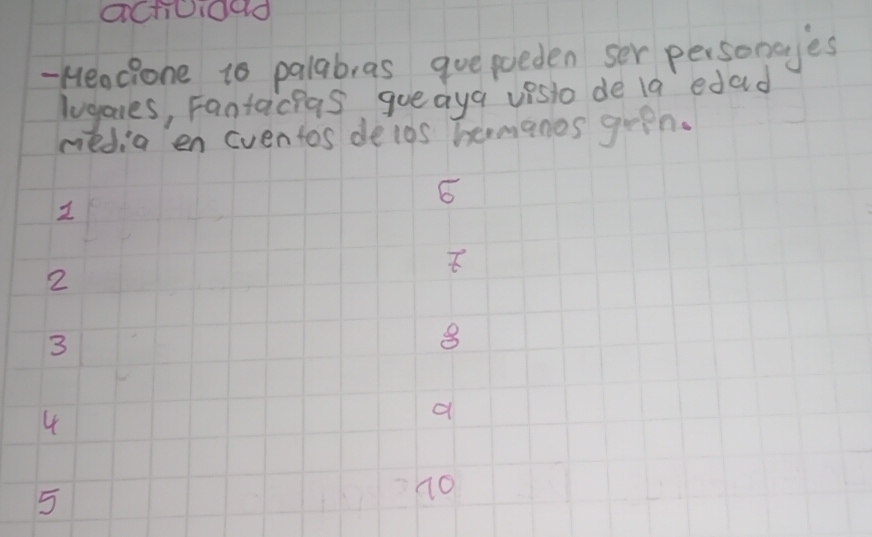 actividad
-Mencione 10 palabras que pueden ser personajes
lugares, Fantacias que aya visto de la edad
media en cuentos de los hermanos grin.
1 6
2 7
3 8
4 9
5 10